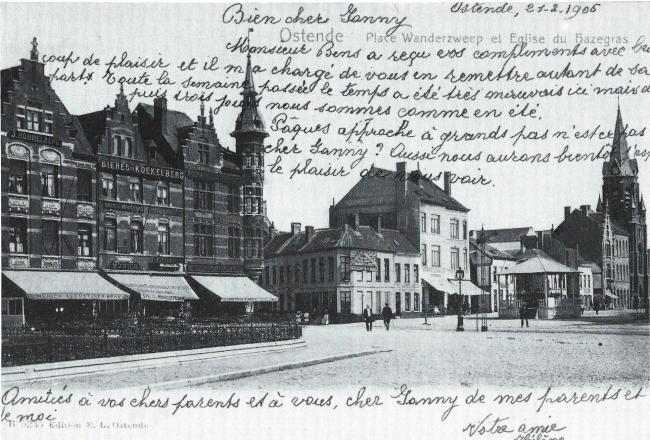 Bien cher Ganny
Ostende, 21-2.1906
Ostende Place Wanderzweep et Eglise du Hazegras
Monsieur Bens a reçu vos compliments avec beau
coup de plaisir et il m'a chargé de vous en remettre autant de sa
part. Toute la semaine passée le temps a été très mauvais ici mais de
puis trois jours nous sommes comme en été.
Pâques approche à grands pas n'est ce pas
cher Ganny? Aussi nous aurons bientôt j'esp
le plaisir de vous voir.
BIERES KOEKELBERG
Amitiés à vos chers parents et à vous, cher Ganny de mes parents et
de moi
Edition E. L. Ostende
Votre amie
Hélène